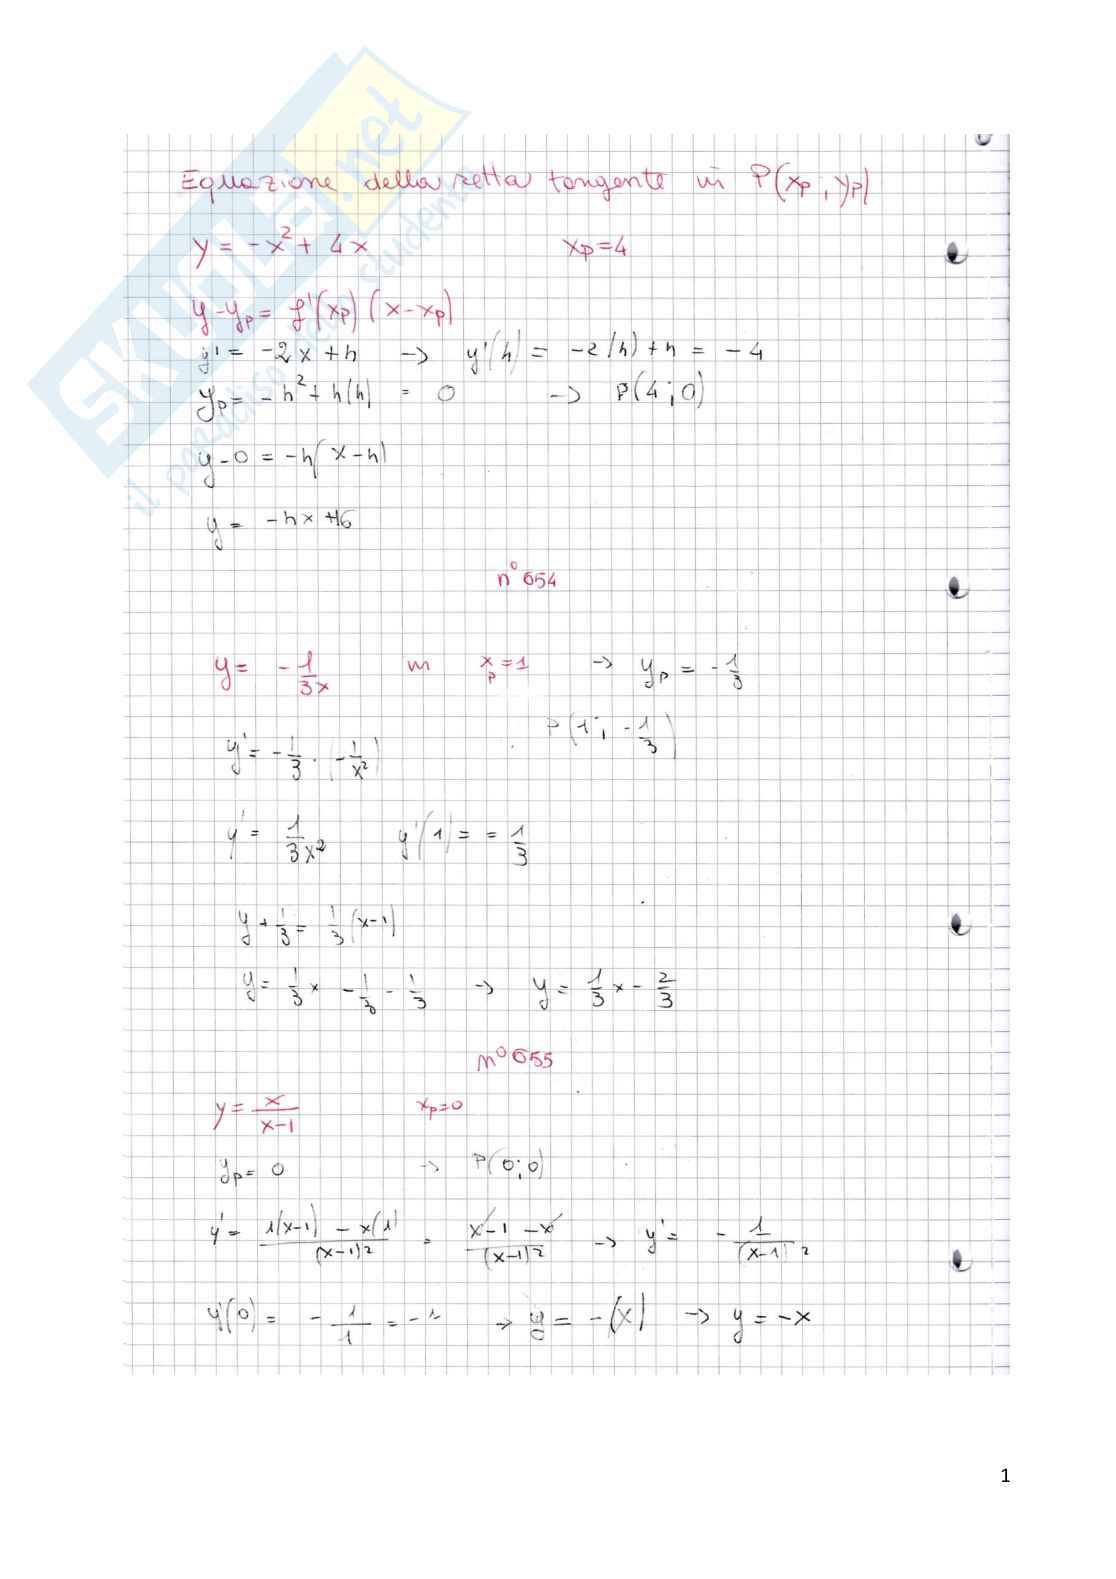 SKUOLA.net
il paradiso dello studente
Equazione della retta tangente in P(xp ; yp)
y = -x² + 4x xp = 4
y - yp = f'(xp) (x - xp)
y' = -2x + 4 -> y'(4) = -2(4) + 4 = -4
yp = -4² + 4(4) = 0 -> P(4 ; 0)
y - 0 = -4(x - 4)
y = -4x + 16
n° 654
y = - 1/3x in xp = 1 -> yp = - 1/3
P(1 ; - 1/3)
y' = - 1/3 · (- 1/x²)
y' = 1/3x² y'(1) = = 1/3
y + 1/3 = 1/3 (x - 1)
y = 1/3 x - 1/3 - 1/3 -> y = 1/3 x - 2/3
n° 655
y = x/(x-1) xp = 0
yp = 0 -> P(0 ; 0)
y' = (1(x-1) - x(1))/(x-1)² = (x - 1 - x)/(x-1)² -> y' = - 1/(x-1)²
y'(0) = - 1/1 = -1 -> y = -(x) -> y = -x
1